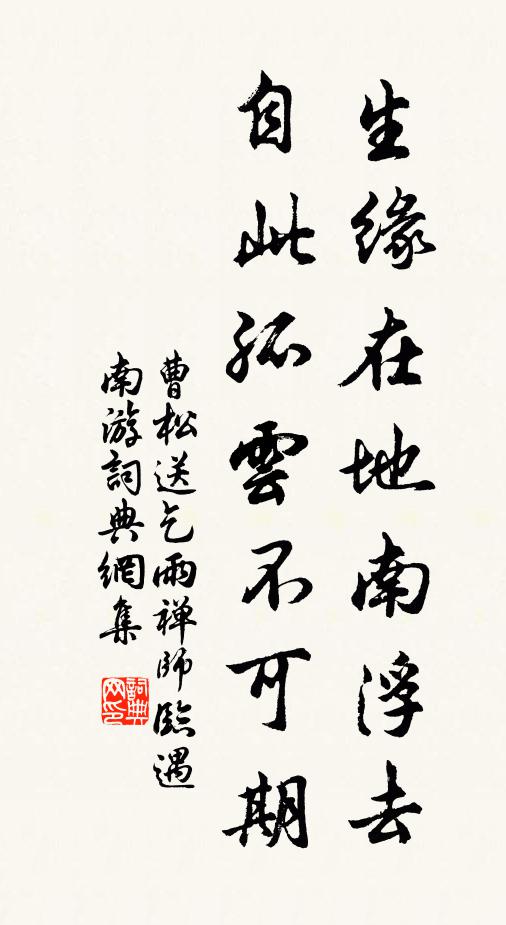 生緣在地南浮去
自此孤雲不可期
曹松送乞雨禅師臨遇
南游詞典網集
詞典
网印